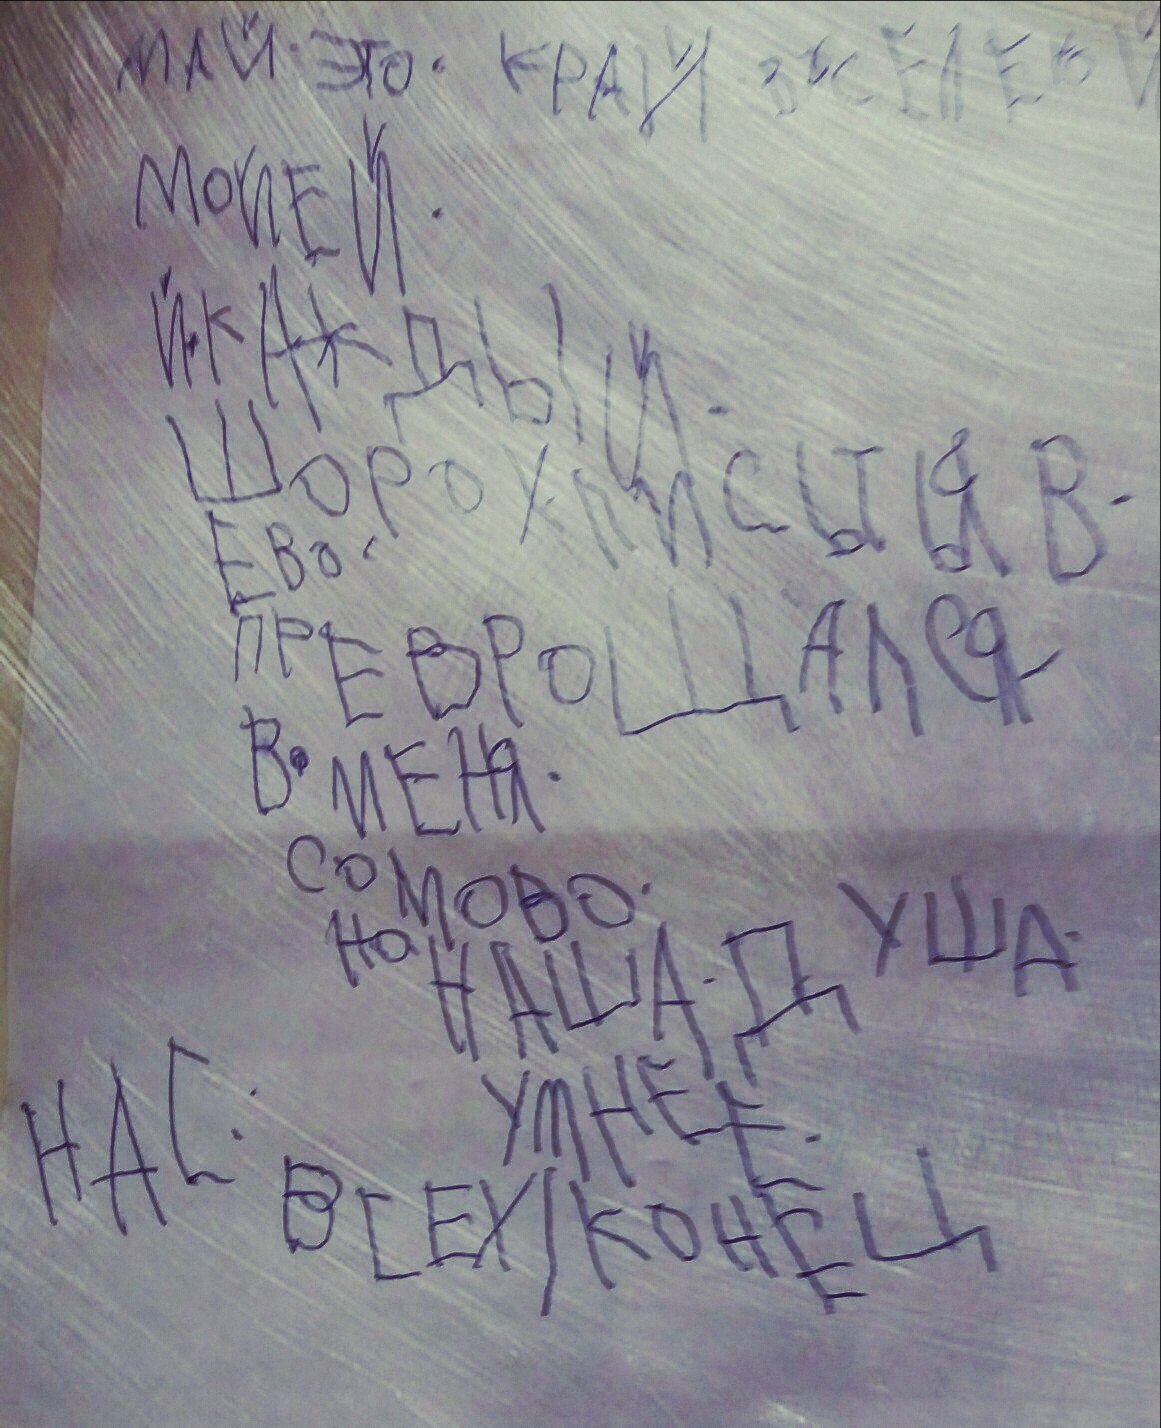 МАЙ. ЭТО. КРАЙ ВСЕЛЕНОЙ
МОЙЕЙ.
Й.КАЖДЫЙ.
ШОРОХ
ЕВО.
ПРЕВРОЩАЛСЯ
В. МЕНЯ.
СОМОВО.
НО НАША. ДУША.
УМНЕЕ.
НАС. ВСЕХ/КОНЕЦ